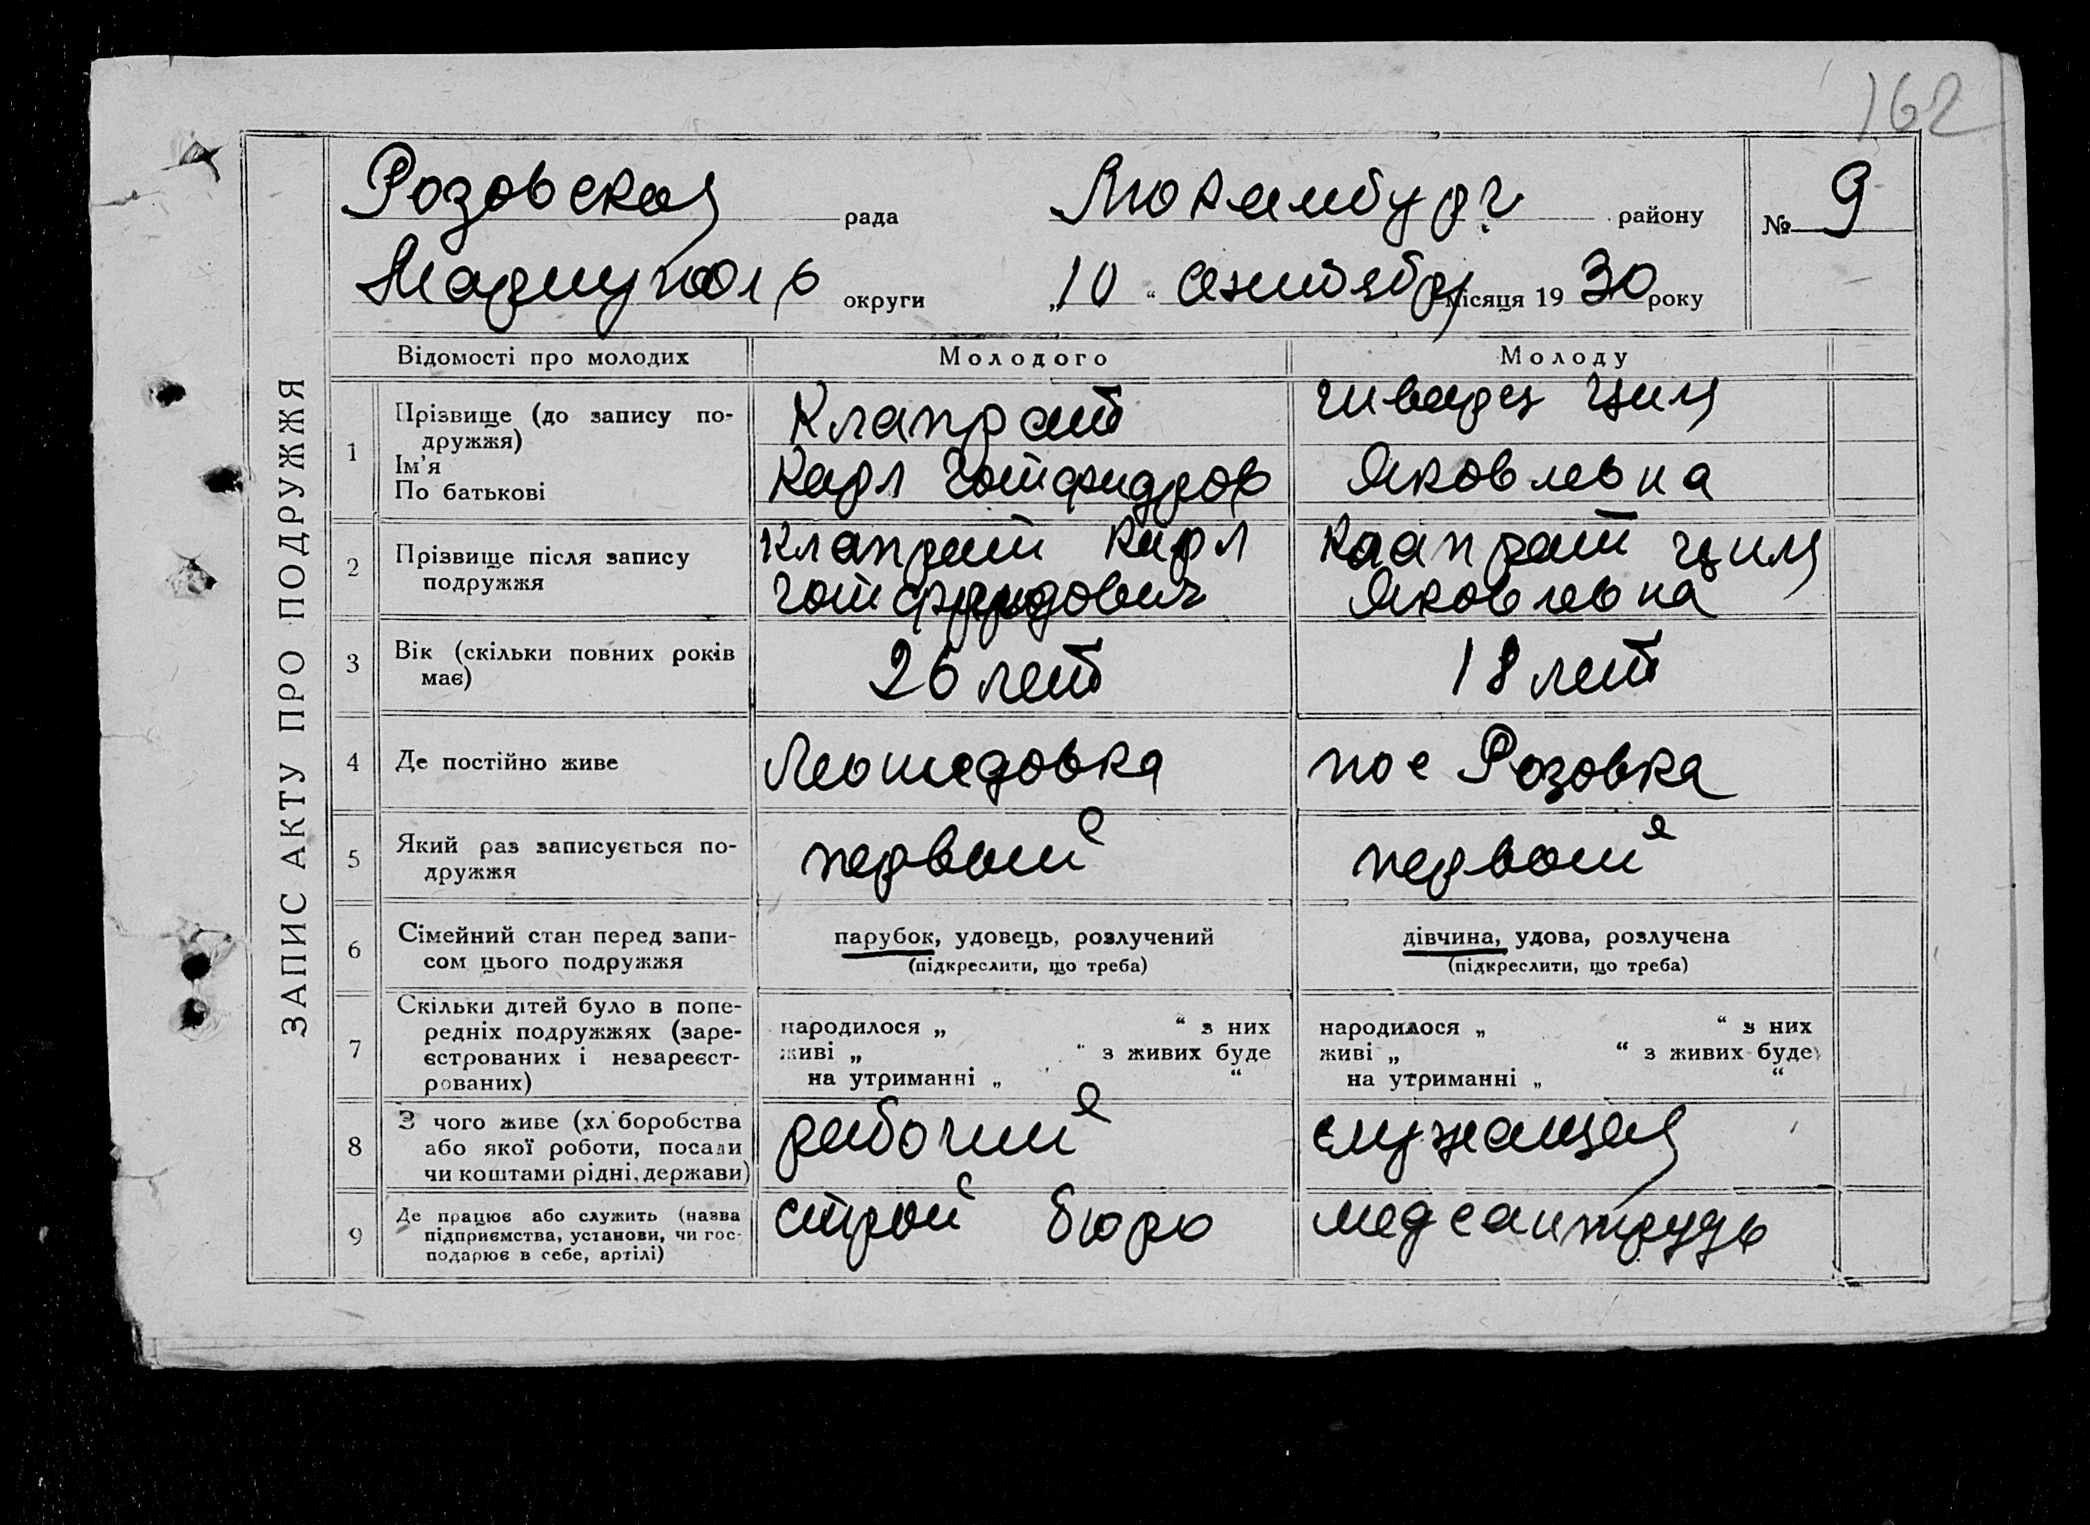 162
Розовская рада Люксембург району № 9
Мариуполь округи „10“ сентября місяця 1930 року
ЗАПИС АКТУ ПРО ПОДРУЖЖЯ
Відомості про молодих Молодого Молоду
1 Прізвище (до запису по-
дружжя)
Ім'я
По батькові
Клапрат
Карл Готфидров
Шварц Циля
Яковлевна
2 Прізвище після запису
подружжя
Клапрат Карл
Готфридович
Клапрат Циля
Яковлевна
3 Вік (скільки повних років
має)
26 лет
18 лет
4 Де постійно живе
пос Розовка
5 Який раз записується по-
дружжя
первый
первый
6 Сімейний стан перед запи-
сом цього подружжя
парубок, удовець, розлучений
(підкреслити, що треба)
дівчина, удова, розлучена
(підкреслити, що треба)
7 Скільки дітей було в попе-
редніх подружжях (заре-
єстрованих і незареєст-
рованих)
народилося „ “ з них
живі „ “ з живих буде
на утриманні „ “
народилося „ “ з них
живі „ “ з живих буде
на утриманні „ “
8 З чого живе (хліборобства
або якої роботи, посади
чи коштами рідні, держави)
рабочий
служащая
9 Де працює або служить (назва
підприємства, установи, чи гос-
подарює в себе, артілі)
строй бюро
медсантрудь